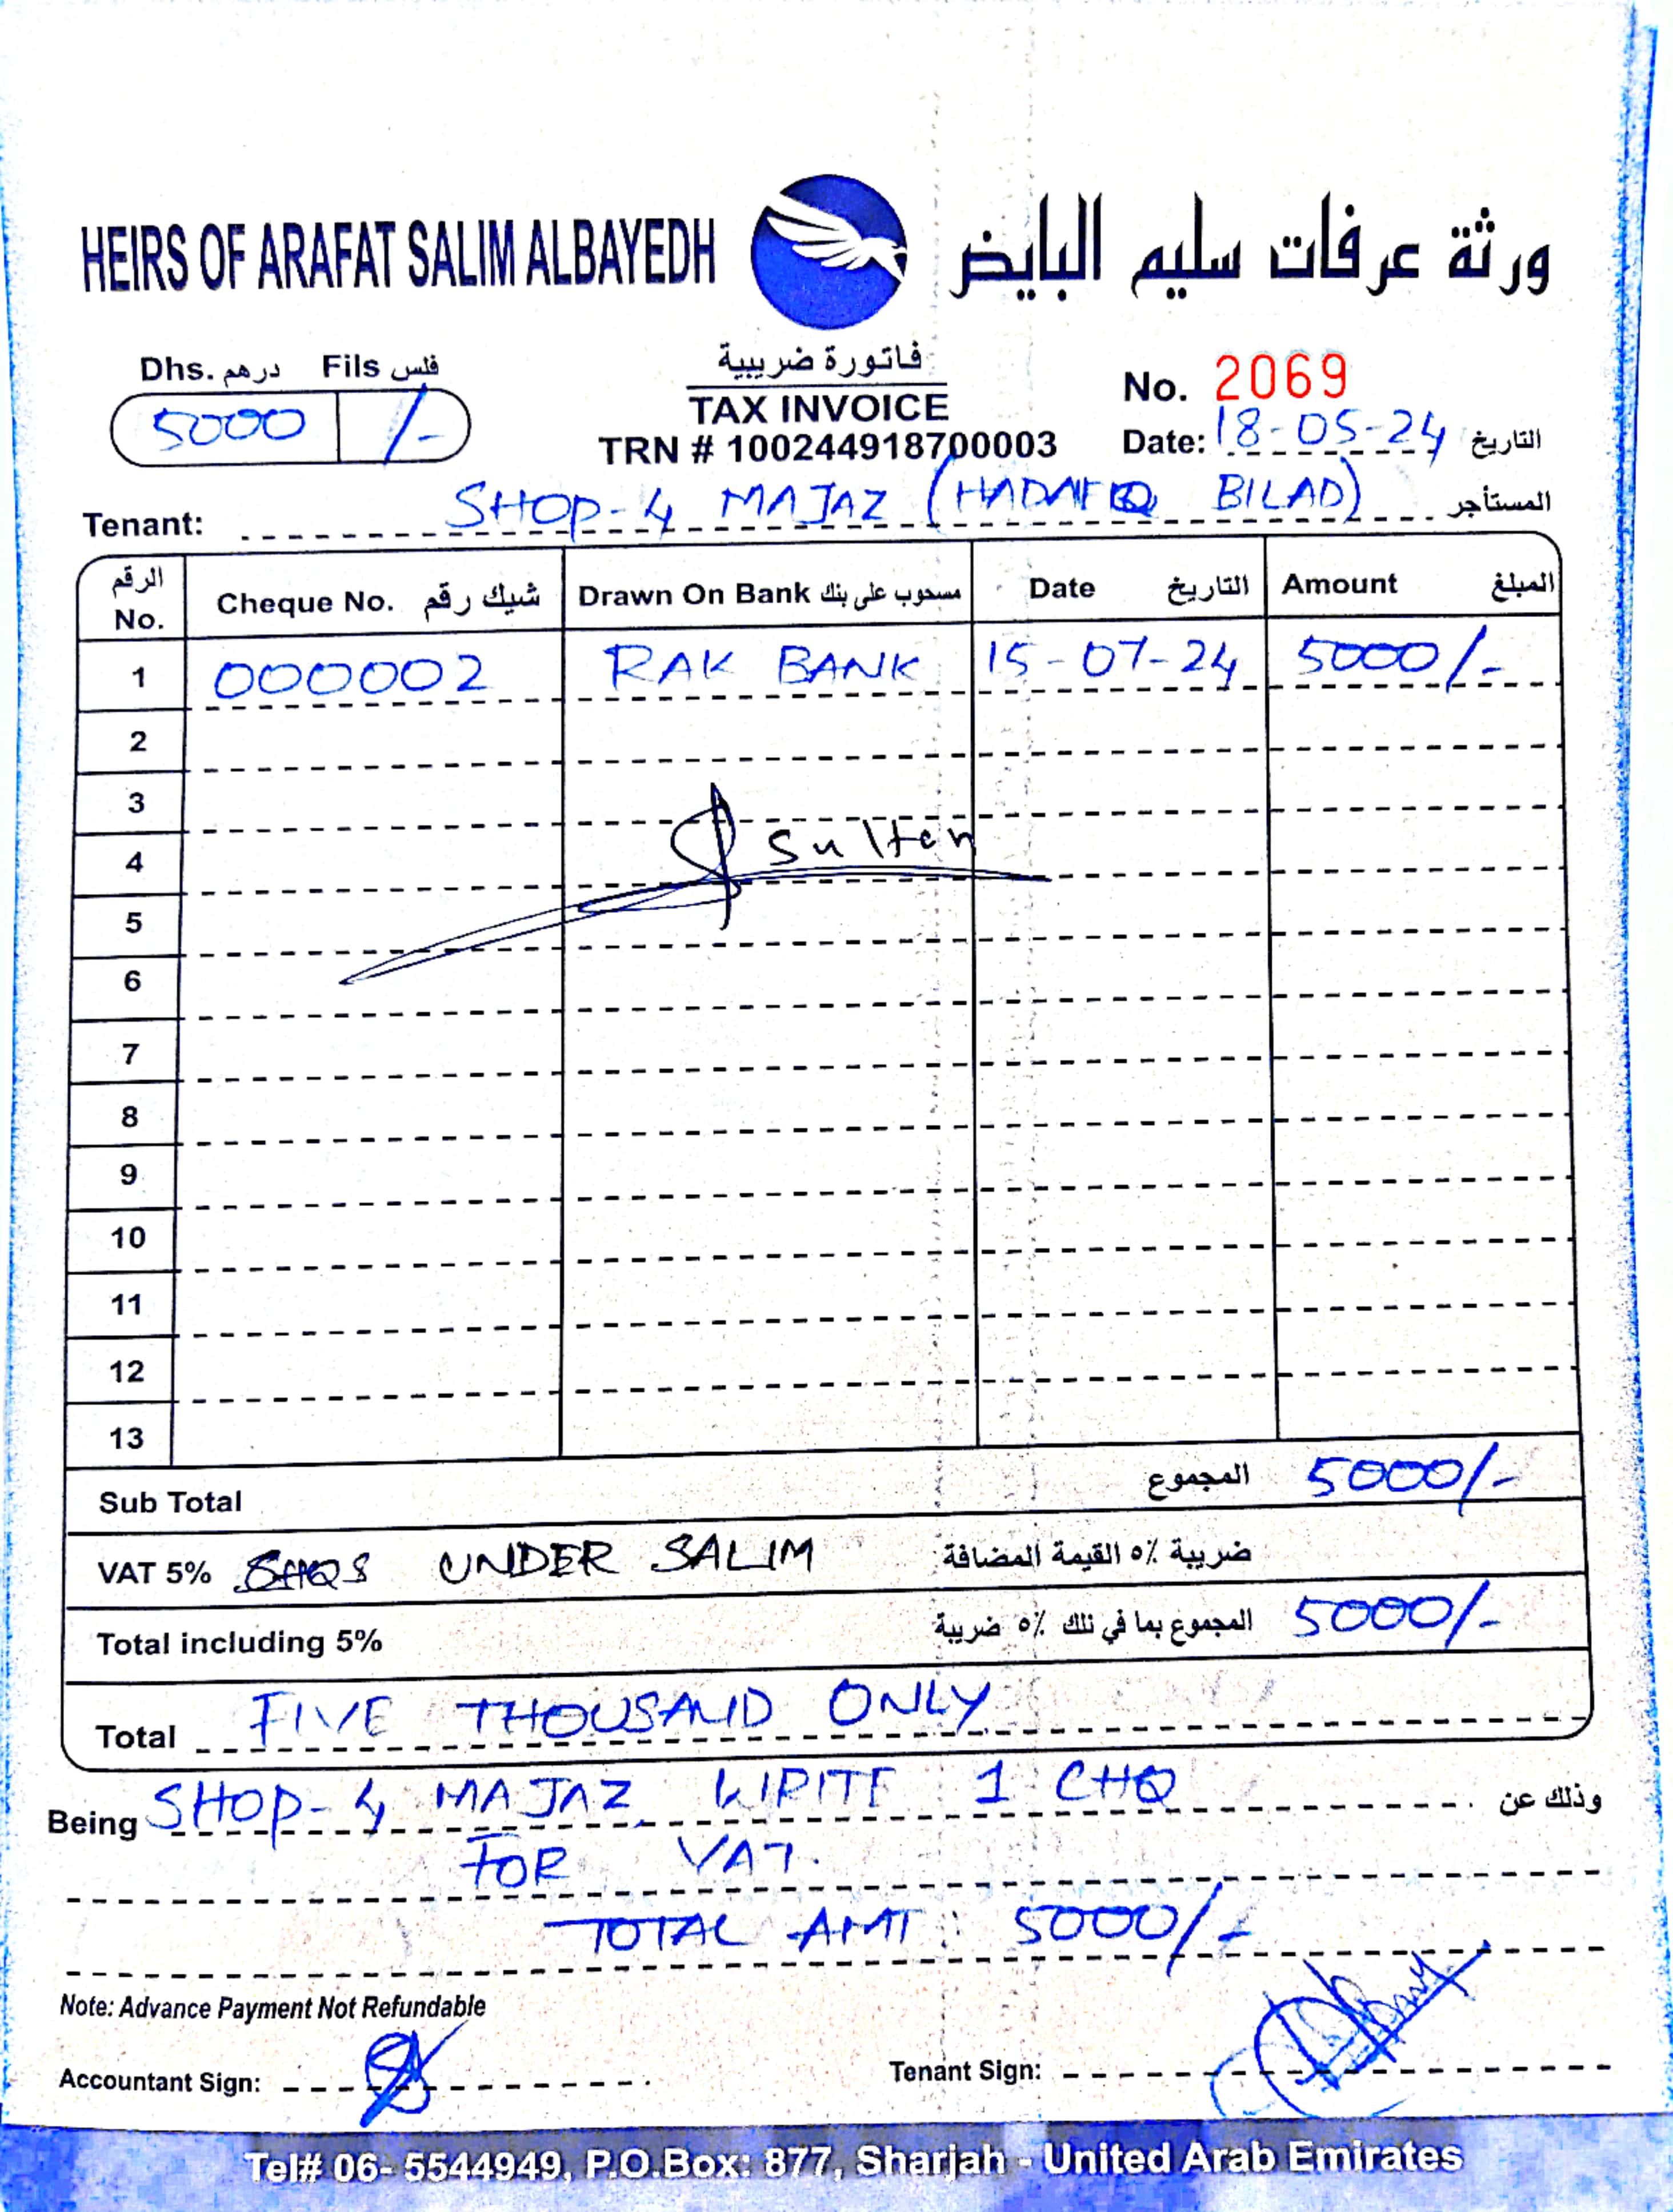 HEIRS OF ARAFAT SALIM ALBAYEDH ورثة عرفات سليم البايض
Dhs. درهم Fils فلس
5000 /-
فاتورة ضريبية
TAX INVOICE
TRN # 100244918700003
No. 2069
Date: 18-05-24 التاريخ
Tenant: SHOP-4 MAJAZ (HADAIEQ BILAD) المستأجر
الرقم No. Cheque No. شيك رقم Drawn On Bank مسحوب على بنك Date التاريخ Amount المبلغ
1 000002 RAK BANK 15-07-24 5000/-
2
3
4 Sulten
5
6
7
8
9
10
11
12
13
Sub Total المجموع 5000/-
VAT 5% UNDER SALIM ضريبة ٥٪ القيمة المضافة
Total including 5% المجموع بما في ذلك ٥٪ ضريبة 5000/-
Total FIVE THOUSAND ONLY
Being SHOP-4 MAJAZ 1 CHQ وذلك عن
FOR VAT.
TOTAL AMT : 5000/-
Note: Advance Payment Not Refundable
Accountant Sign:
Tenant Sign:
Tel# 06- 5544949, P.O.Box: 877, Sharjah - United Arab Emirates